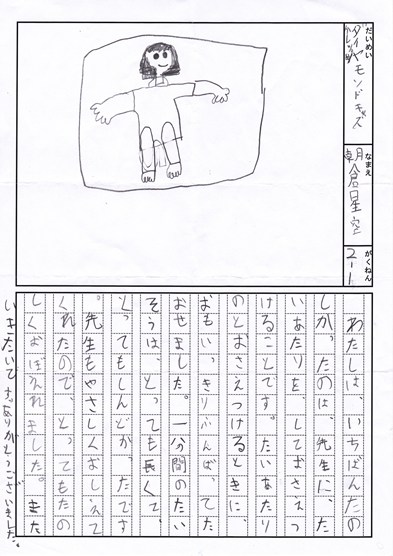 だいめい
ダイヤモンドキッズ
カレッジ
なまえ
朝倉星空
がくねん
2-1
わたしは、いちばんたの
しかったのは、先生に、た
いあたりを、しておさえつ
けることです。たいあたり
のとおさえつけるときに、
おもいっきりふんばってた
おせました。一分間のたい
そうは、とっても長くて、
とってもしんどかったです
。先生もやさしくおしえて
くれたので、とってもたの
しくおぼえれました。また
いきたいです。ありがとうございました。